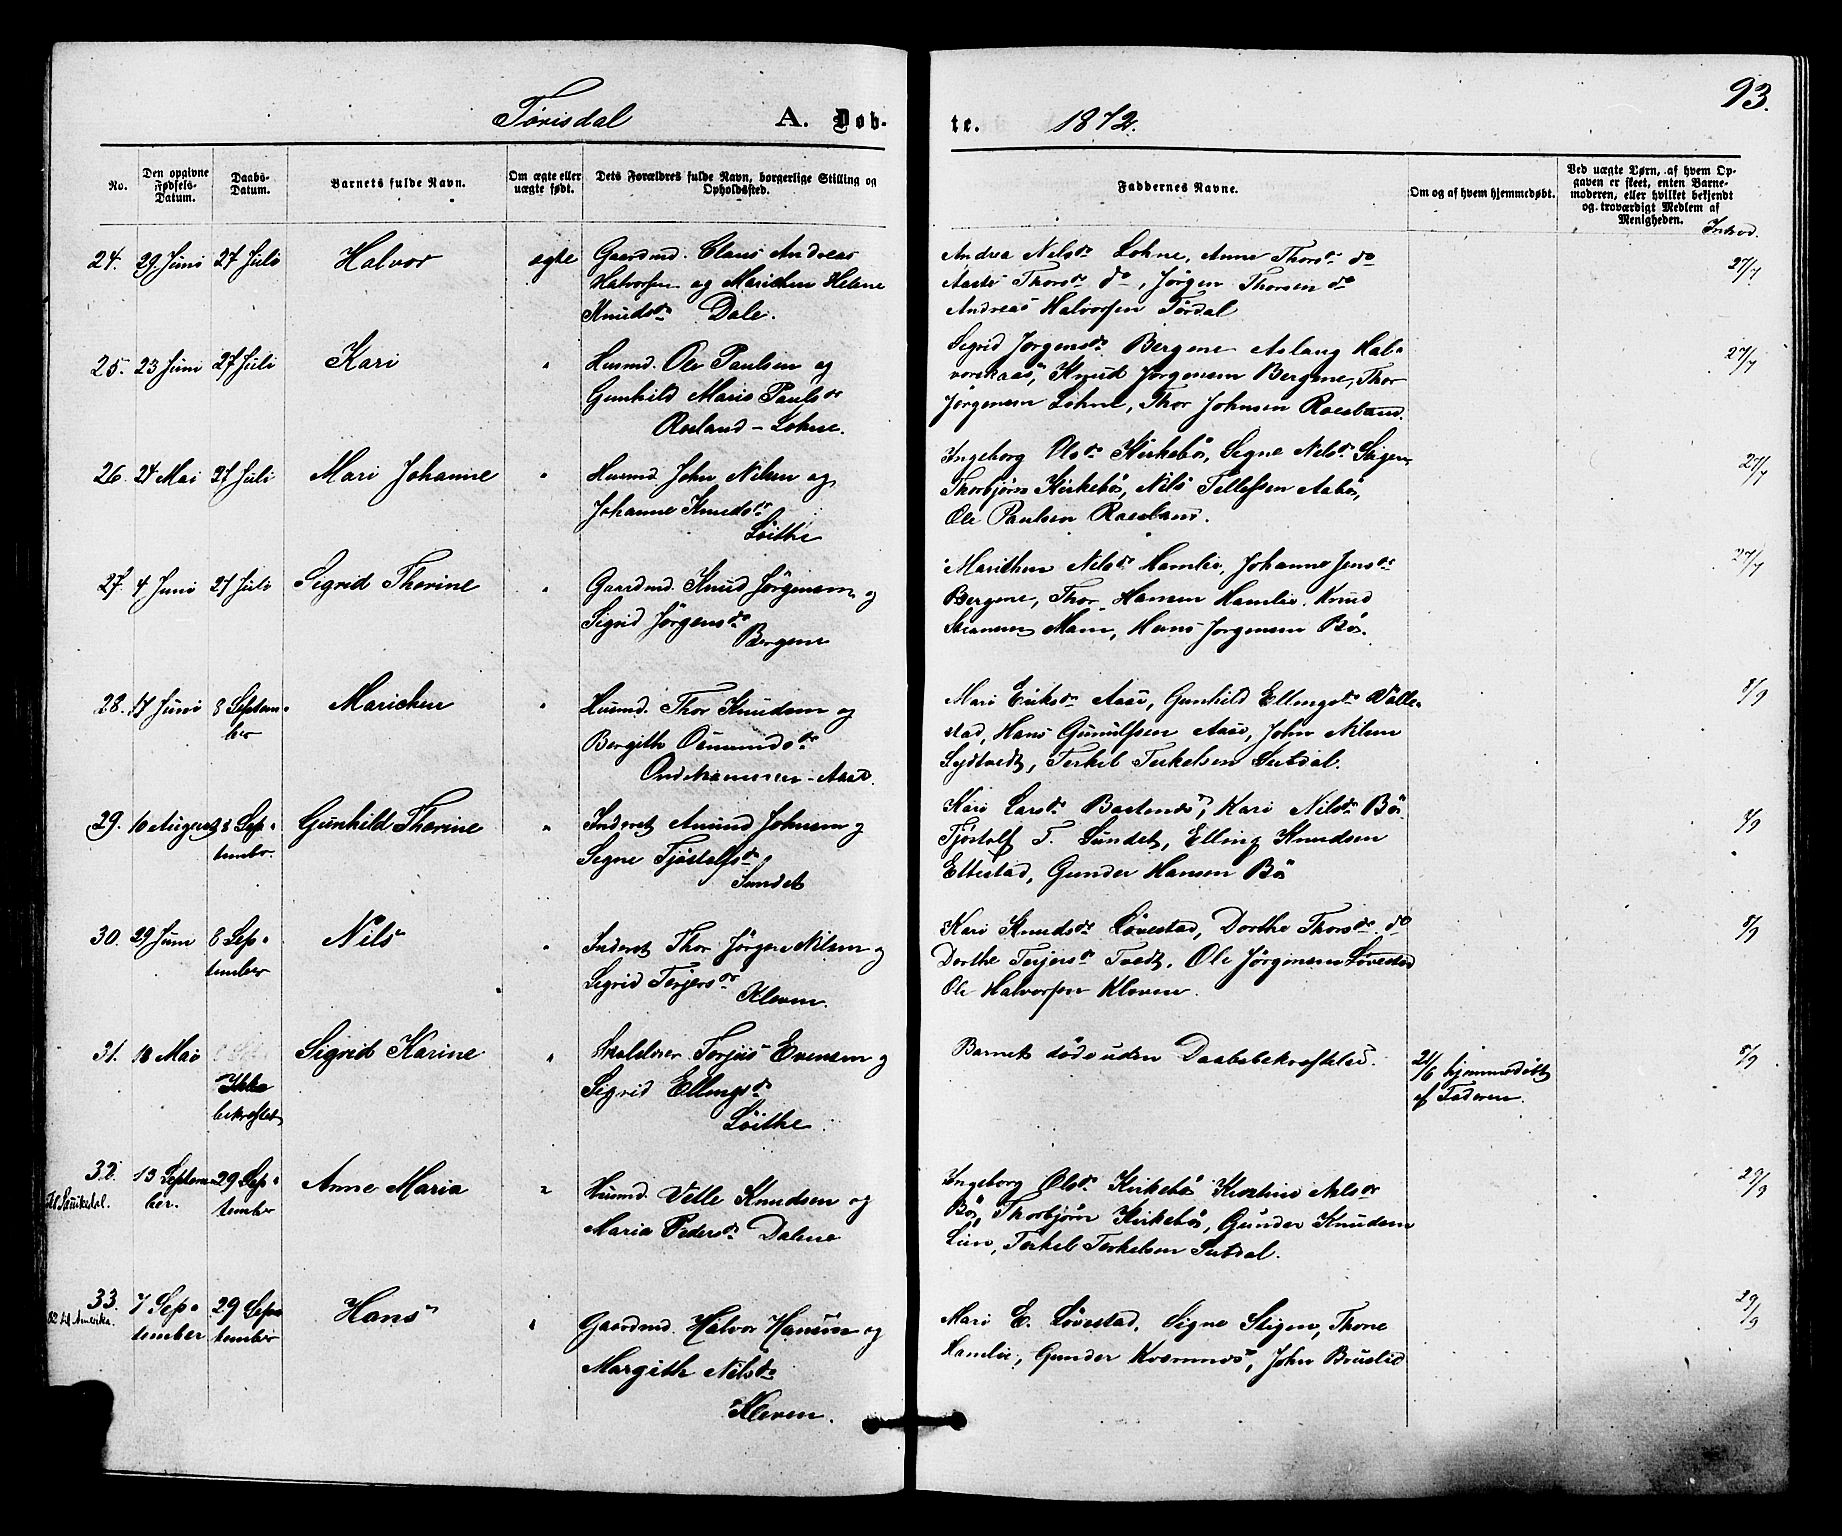 93.
Törisdal A. Døb- te. 1872.
No.
Den opgivne Fødsels-Datum.
Daabs-Datum.
Barnets fulde Navn.
Om ægte eller uægte født.
Dets Forældres fulde Navn, borgerlige Stilling og Opholdssted.
Faddernes Navne.
Om og af hvem hjemmedøbt.
Ved uægte Børn, af hvem Opgaven er skeet, enten Barnemoderen, eller hvilket bekjendt og troværdigt Medlem af Menigheden.
24. 29 Juni 27 Juli Halvor ægte Gaardmd. Claus Andreas
Halvorsen og Marichen Helene
Knudsdr Dale.
Andrea Nilsdr Lohne, Anne Thorsdr do
Aaste Thorsdr do, Jørgen Thorsen do
Andreas Halvorsen Tördal
27/7
25. 23 Juni 27 Juli Kari " Husmd. Ole Paulsen og
Gunhild Marie Paulsdr
Lohne.
Sigrid Jørgensdr Bergene Aslaug Hal-
vorskaas, Knud Jørgensen Bergene, Thor
Jørgensen Lohne, Thor Johnsen
27/7
26. 24 Mai 27 Juli Mari Johanne " Husmd. John Nilsen og
Johanne Knudsdr
Löithe
Ingeborg Olsdr Kirkebö, Signe Nilsdr Stigen,
Thorbjörn Kirkebö, Nils Tellefsen Aabö,
Ole Paulsen
27/7
27. 4 Juni 27 Juli Sigrid Thorine " Gaardmd. Knud Jörgensen og
Sigrid Jørgensdr
Bergene
Marichen Nilsdr Hamlie, Johanne Jensdr
Bergene, Thor Hansen Hamlie, Knud
Moen, Hans Jørgensen Bö.
27/7
28. 17 Juni 8 Septem-
ber
Marichen " Husmd. Thor Knudsen og
Bergith Osmundsdr
Aase.
Mari Eriksdr Aase, Gunhild Ellingsdr Valle-
stad, Hans Gunulfsen Aase, John Nilsen
Lydtvedt, Terkel Terkelsen Sutdal.
8/9
29. 10 August 8 Sep-
tember.
Gunhild Thorine " Inderst Amund Johnsen og
Signe Tjöstolfsdr
Sundet
Kari Larsdr Bastenes, Kari Nilsdr Bö
Tjöstolf T. Sundet, Elling Knudsen
Ettestad, Gunder Hansen Bö
8/9
30. 29 Juni 8 Sep-
tember
Nils " Inderst Thor Jörgen Nilsen og
Sigrid Terjersdr
Kleven.
Kari Knudsdr Lövestad, Dorthe Thorsdr do
Dorthe Terjersdr Tvedt, Ole Jörgensen Lövestad
Ole Halvorsen Kleven.
8/9
31. 18 Mai Ikke
bekræftet
Sigrid Karine " Skolelærer Torjus Evensen og
Sigrid Ellingsdr
Löithe.
Barnet döde uden Daabsbekræftelse.
21/6 hjemmedöbt
af Faderen.
8/9
32. 13 Septem-
ber.
29 Sep-
tember
Anne Maria " Husmd. Vetle Knudsen og
Maria Pedersdr Dalene
Ingeborg Olsdr Kirkebö Kirstine Nilsdr
Bö, Thorbjörn Kirkebö, Gunder Knudsen
Lien, Terkel Terkelsen Sutdal.
29/9
33. 7 Sep-
tember
82 til Amerika.
29 Sep-
tember
Hans " Gaardmd. Halvor Hansen og
Margith Nilsdr
Kleven.
Mari E. Lövestad, Signe Stigen, Thone
Hamlie, Gunder Kvernnes, John Bruslid
29/9